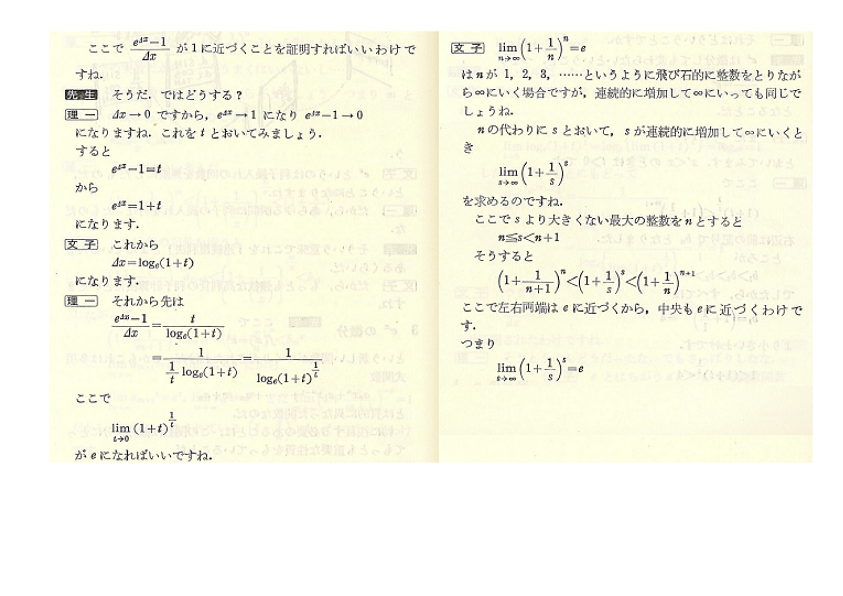 ここで (e^Δx−1)/Δx が1に近づくことを証明すればいいわけで
すね.
先生 そうだ. ではどうする?
理一 Δx→0 ですから, e^Δx→1 になり e^Δx−1→0
になりますね. これを t とおいてみましょう.
すると
e^Δx−1=t
から
e^Δx=1+t
になります.
文子 これから
Δx=log_e(1+t)
になります.
理一 それから先は
(e^Δx−1)/Δx = t/log_e(1+t)
= 1/((1/t)log_e(1+t)) = 1/log_e(1+t)^(1/t)
ここで
lim_(t→0) (1+t)^(1/t)
が e になればいいですね.
文子 lim_(n→∞) (1+1/n)^n=e
は n が 1, 2, 3, ……というように飛び石的に整数をとりなが
ら∞にいく場合ですが, 連続的に増加して∞にいっても同じで
しょうね.
n の代わりに s とおいて, s が連続的に増加して∞にいくと
き
lim_(s→∞) (1+1/s)^s
を求めるのですね.
ここで s より大きくない最大の整数を n とすると
n≦s<n+1
そうすると
(1+1/(n+1))^n<(1+1/s)^s<(1+1/n)^(n+1)
ここで左右両端は e に近づくから, 中央も e に近づくわけで
す.
つまり
lim_(s→∞) (1+1/s)^s=e